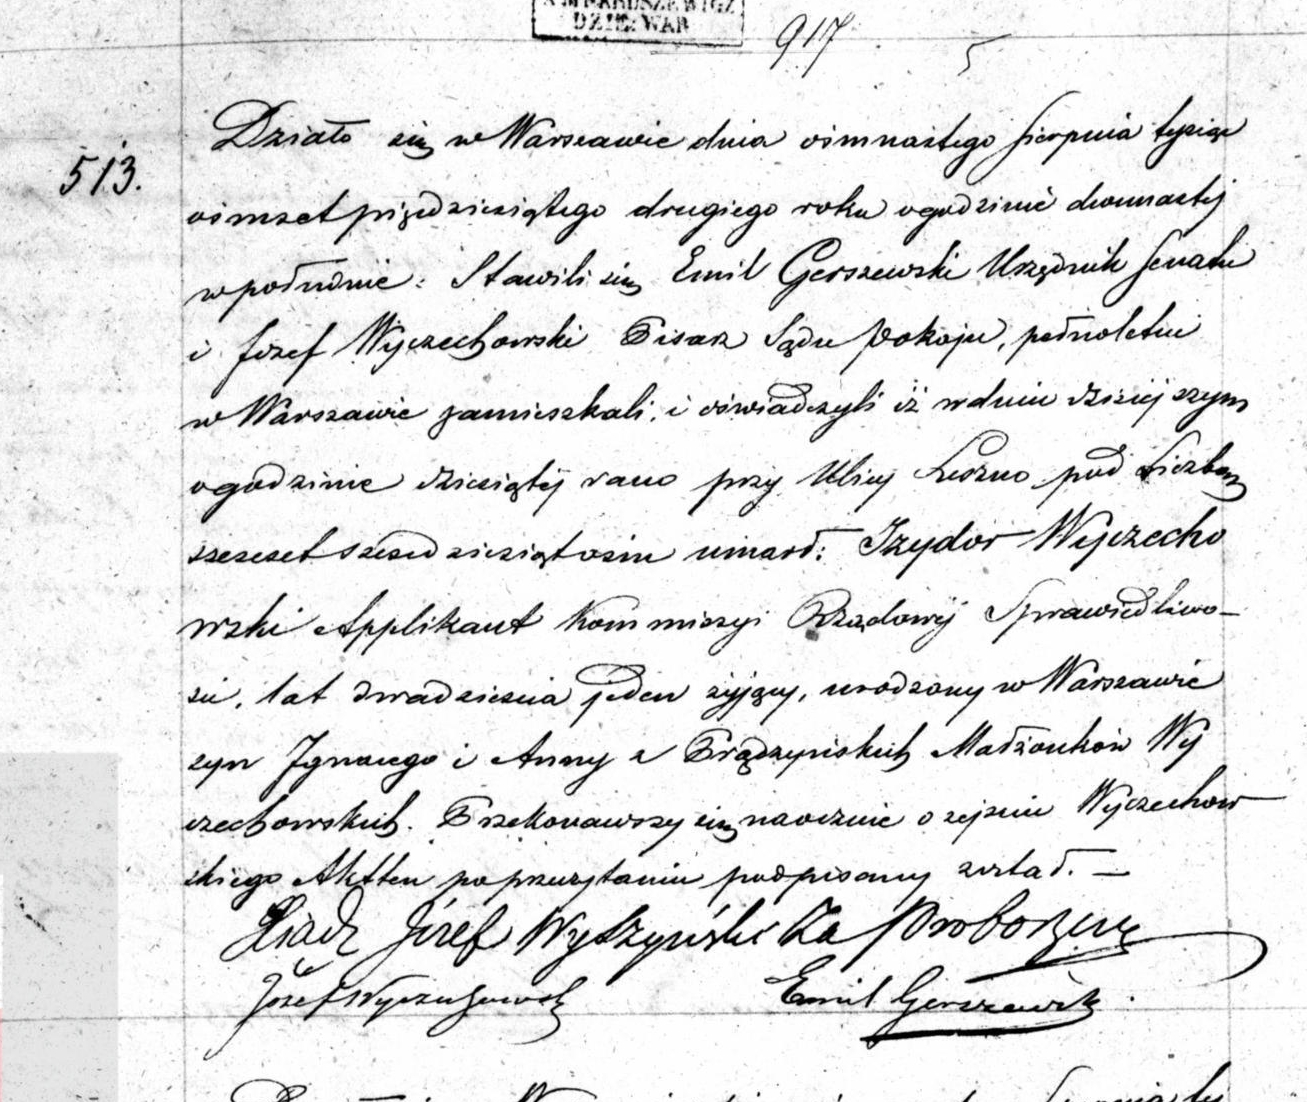 DZIEŁ WAR
917
513.
Działo się w Warszawie dnia ośmnastego Sierpnia tysiąc
ośmset pięćdziesiątego drugiego roku o godzinie dwunastej
w południe: Stawili się Emil Gerszewski Urzędnik Senatu
i Józef Wyczechowski Pisarz Sądu Pokoju, pełnoletni
w Warszawie zamieszkali, i oświadczyli iż w dniu dzisiejszym
o godzinie dziesiątej rano przy Ulicy Leszno pod Liczbą
sześset sześćdziesiąt ośm umarł: Izydor Wyczecho
wski Applikant Kommissyi Rządowej Sprawiedliwo-
ści, lat dwadzieścia jeden żyjący, urodzony w Warszawie
syn Ignacego i Anny z Prądzyńskich Małżonków Wy
czechowskich. Przekonawszy się naocznie o zejściu Wyczechow
skiego Akt ten po przeczytaniu podpisany został. —
Xiądz Józef Wyszyński Za Proboszcza
Józef Wyczechowski Emil Gerszewski